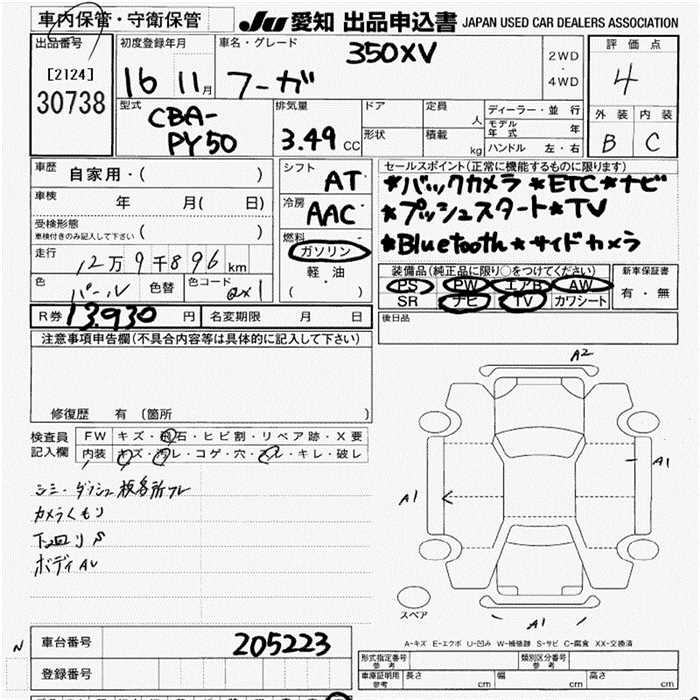 車内保管・守衛保管
JU 愛知 出品申込書 JAPAN USED CAR DEALERS ASSOCIATION
出品番号
[2124]
30738
初度登録年月
16 11月
車名・グレード
350XV
フーガ
2WD
・
4WD
評価点
4
外装 内装
B C
型式
CBA-
PY50
排気量
3.49 CC
ドア
形状
定員 人
積載 kg
ディーラー・並行
モデル年式 年
ハンドル 左・右
車歴
自家用・( )
車検 年 月( 日)
受検形態
車検付きのみ記入して下さい ( )
走行
12万9千896km
色 パール 色替 色コード QX1
シフト
AT
冷房
AAC
燃料
ガソリン
軽油
( ・ )
セールスポイント(正常に機能するものに限ります)
*バックカメラ *ETC*ナビ
*プッシュスタート*TV
*Bluetooth*サイドカメラ
装備品(純正品に限り○をつけてください)
PS PW エアB AW
SR ナビ TV カワシート
新車保証書
有・無
R券 13,930 円 名変期限 月 日
後日品
注意事項申告欄(不具合内容等は具体的に記入して下さい)
修復歴 有 (箇所 )
検査員
記入欄
FW キズ・飛石・ヒビ割・リペア跡・X要
内装 キズ・汚レ・コゲ・穴・スレ・キレ・破レ
シミ・ダッシュ板各所スレ
カメラくもり
下回りS
ボディAU
A2
A1
A1
A1
スペア
A-キズ E-エクボ U-凹み W-補修跡 S-サビ C-腐食 XX-交換済
N
車台番号 205223
登録番号
形式指定番号 参考
類別区分番号 参考
車庫証明用 参考 長さ cm 幅 cm 高さ cm